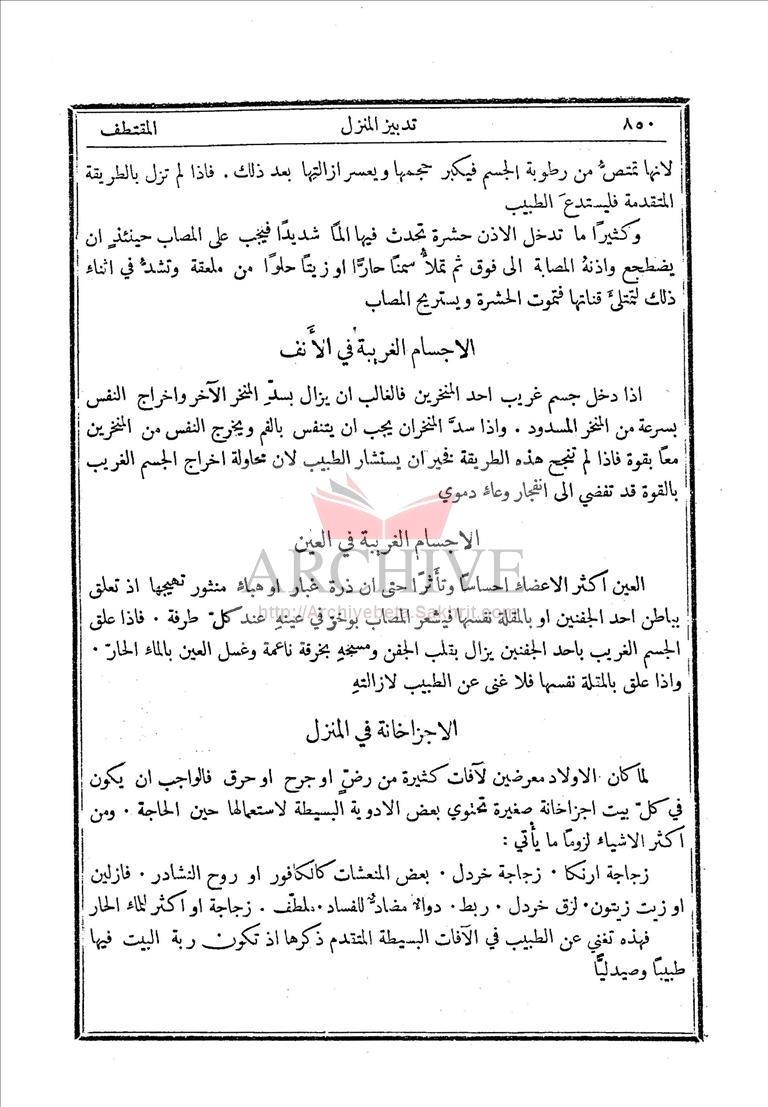 ٨٥٠ تدبير المنزل المقتطف
لانها تمتصُّ من رطوبة الجسم فيكبر حجمها ويعسر ازالتها بعد ذلك . فاذا لم تزل بالطريقة
المتقدمة فليستدعَ الطبيب
وكثيرًا ما تدخل الاذن حشرة تحدث فيها المًا شديدًا فيجب على المصاب حينئذٍ ان
يضطجع واذنهُ المصابة الى فوق ثم تملأُ سمنًا حارًّا او زيتًا حلوًا من ملعقة وتشدُّ في اثناء
ذلك لتمتلئَ قناتها فتموت الحشرة ويستريح المصاب
الاجسام الغريبة في الأَنف
اذا دخل جسم غريب احد المنخرين فالغالب ان يزال بسدّ المنخر الآخر واخراج النفس
بسرعة من المنخر المسدود . واذا سدَّ المنخران يجب ان يتنفس بالفم ويخرج النفس من المنخرين
معًا بقوة فاذا لم تنجح هذه الطريقة فخير ان يستشار الطبيب لان محاولة اخراج الجسم الغريب
بالقوة قد تفضي الى انفجار وعاء دموي
الاجسام الغريبة في العين
ARCHIVE
العين اكثر الاعضاء احساسًا وتأَثرًا حتى ان ذرة غبار او هباء منثور تهيجها اذ تعلق
http://Archivebeta.Sakhrit.com
بباطن احد الجفنين او بالمقلة نفسها فيشعر المصاب بوخزٍ في عينهِ عند كلّ طرفة . فاذا علق
الجسم الغريب باحد الجفنين يزال بقلب الجفن ومسحهِ بخرقة ناعمة وغسل العين بالماء الحارّ .
واذا علق بالمقلة نفسها فلا غنى عن الطبيب لازالتهِ
الاجزاخانة في المنزل
لما كان الاولاد معرضين لآفات كثيرة من رضٍّ او جرح او حرق فالواجب ان يكون
في كلّ بيت اجزاخانة صغيرة تحتوي بعض الادوية البسيطة لاستعمالها حين الحاجة . ومن
اكثر الاشياء لزومًا ما يأْتي :
زجاجة ارنكا . زجاجة خردل . بعض المنعشات كالكافور او روح النشادر . فازلين
او زيت زيتون . لزق خردل . ربط . دواء مضادٌّ للفساد . ملطّف . زجاجة او اكثر للماء الحار
فهذه تغني عن الطبيب في الآفات البسيطة المتقدم ذكرها اذ تكون ربة البيت فيها
طبيبًا وصيدليًّا